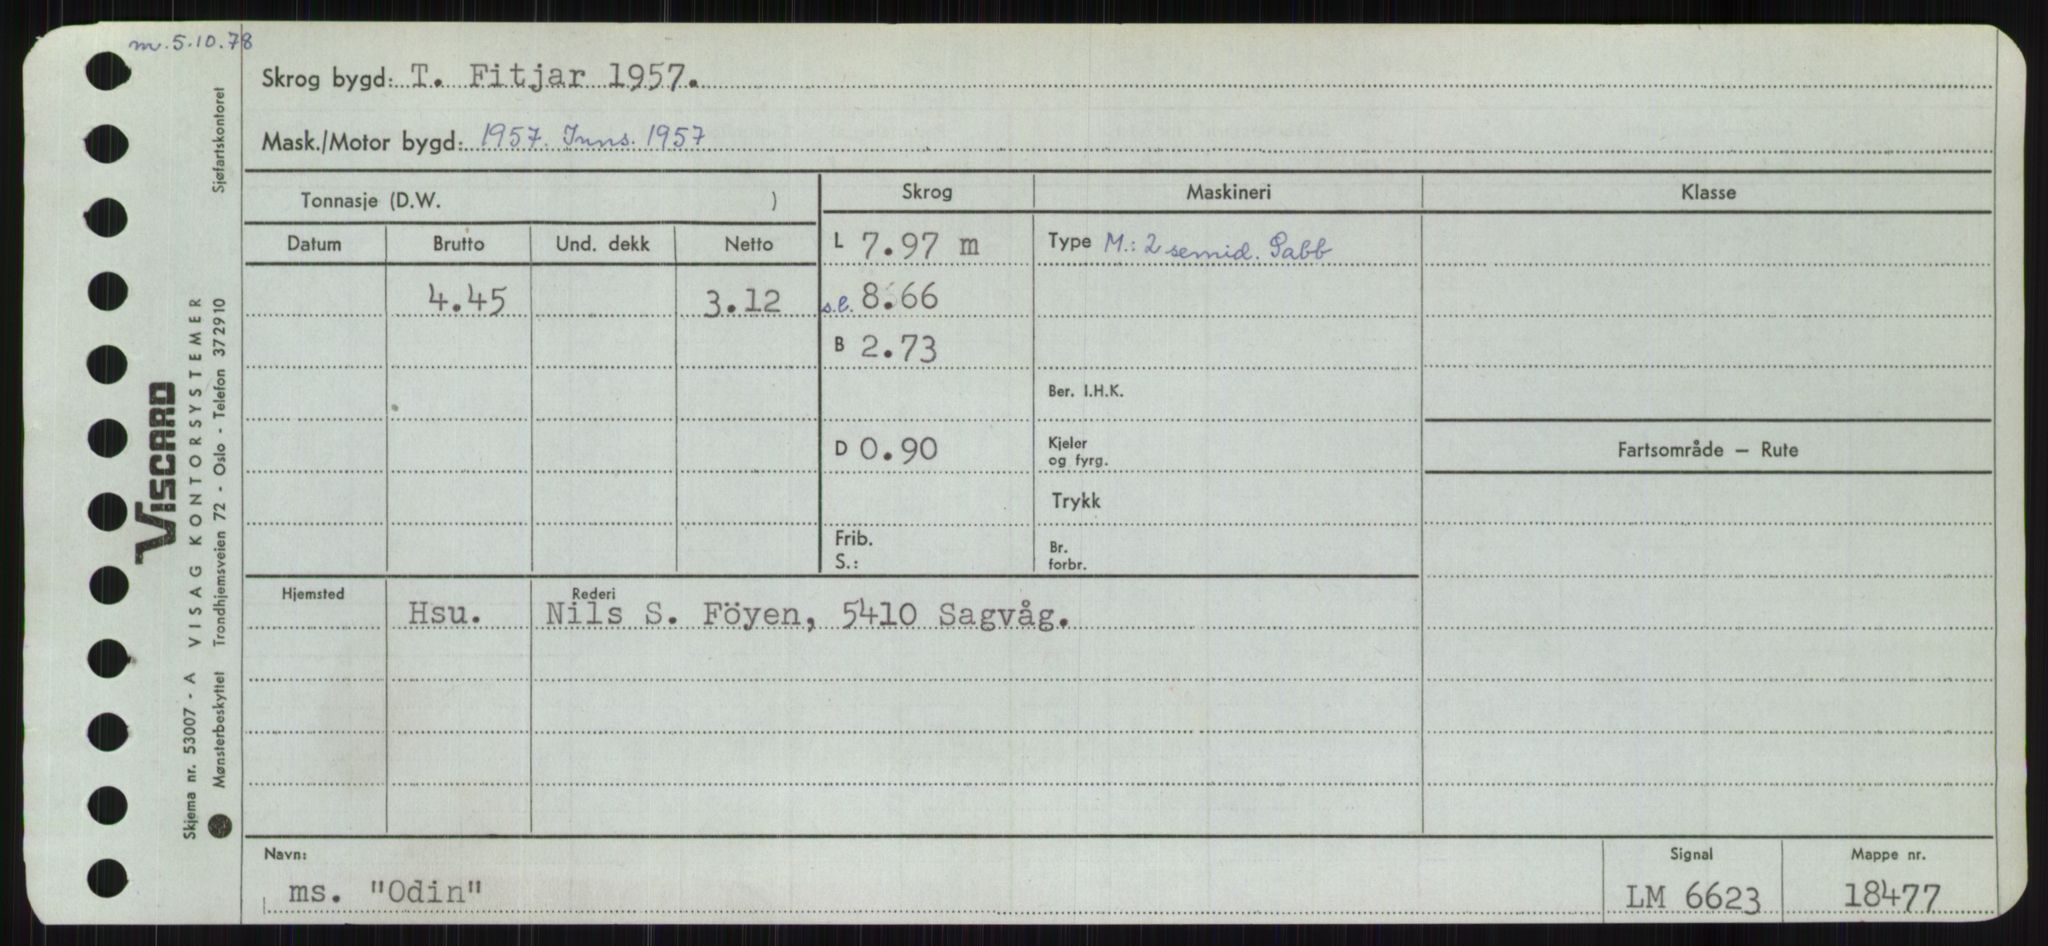 m. 5.10.78
Skrog bygd: T. Fitjar 1957.
Mask./Motor bygd: 1957. Inns. 1957
Tonnasje (D.W. )
Skrog Maskineri Klasse
Datum Brutto Und. dekk Netto
L 7.97 m
Type M.: 2 semid. Sabb
4.45 3.12
s.l. 8.66
B 2.73
Ber. I.H.K.
D 0.90
Kjeler
og fyrg.
Fartsområde – Rute
Trykk
Frib.
S.:
Br.
forbr.
Hjemsted Rederi
Hsu. Nils S. Föyen, 5410 Sagvåg.
Navn: Signal Mappe nr.
ms. "Odin" LM 6623 18477
VISCARD
VISAG KONTORSYSTEMER
Skjema nr. 53007 - A
Mønsterbeskyttet Trondhjemsveien 72 - Oslo - Telefon 372910 Sjøfartskontoret